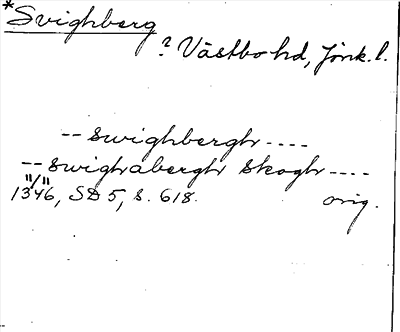 *Svighberg
? Västbo hd, Jönk. l.
-- swighbergh ----
-- swighabergh skogh ----
11/11
1346, SD 5, s. 618. orig.